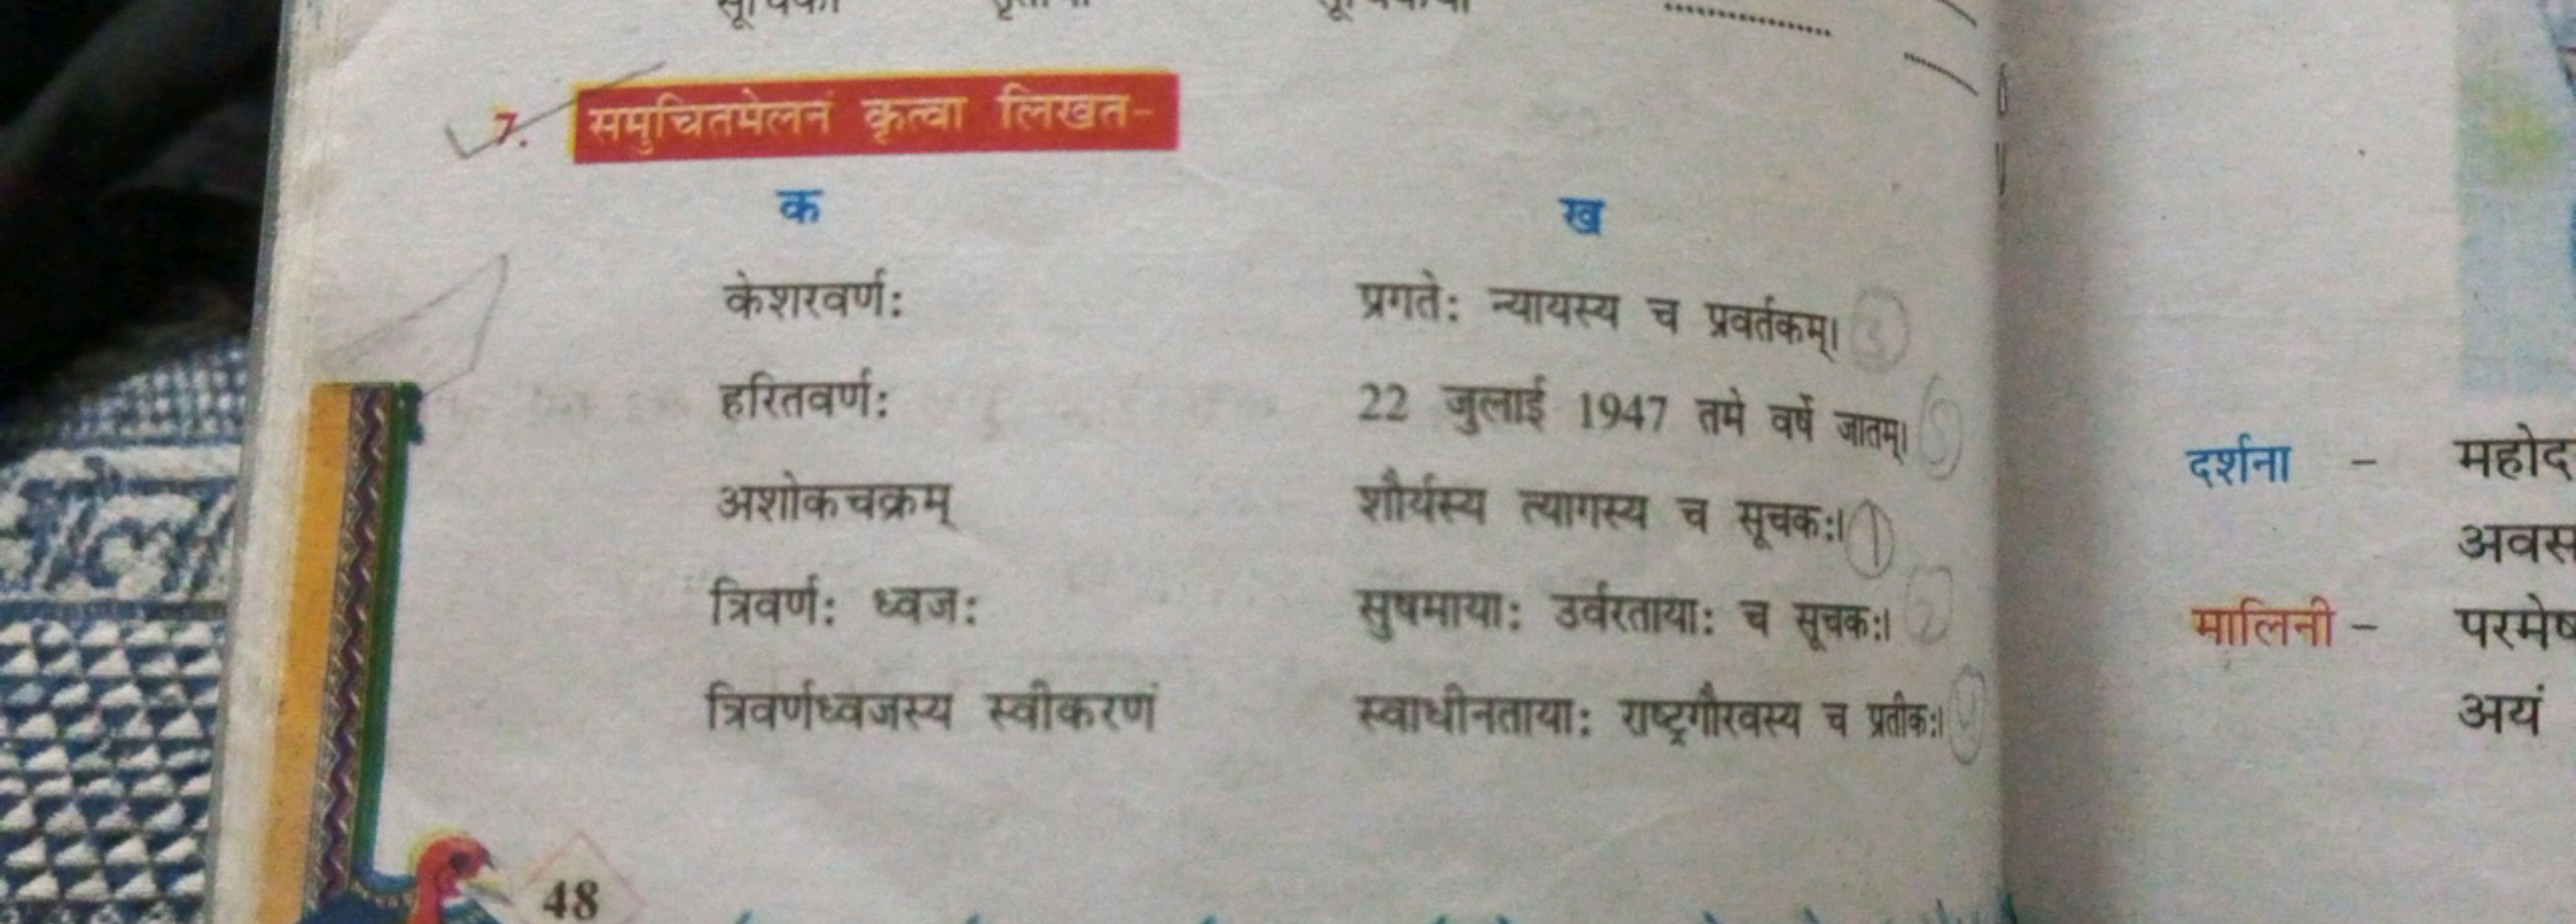 7. समुचितमेलनं कृत्वा लिखत-
क ख
केशरवर्णः प्रगतेः न्यायस्य च प्रवर्तकम्। 3
हरितवर्णः 22 जुलाई 1947 तमे वर्षे जातम्। 5
अशोकचक्रम् शौर्यस्य त्यागस्य च सूचकः। 1
त्रिवर्णः ध्वजः सुषमायाः उर्वरतायाः च सूचकः। 2
त्रिवर्णध्वजस्य स्वीकरणं स्वाधीनतायाः राष्ट्रगौरवस्य च प्रतीकः। 4
48
दर्शना - महोद
अवस
मालिनी - परमेष
अयं